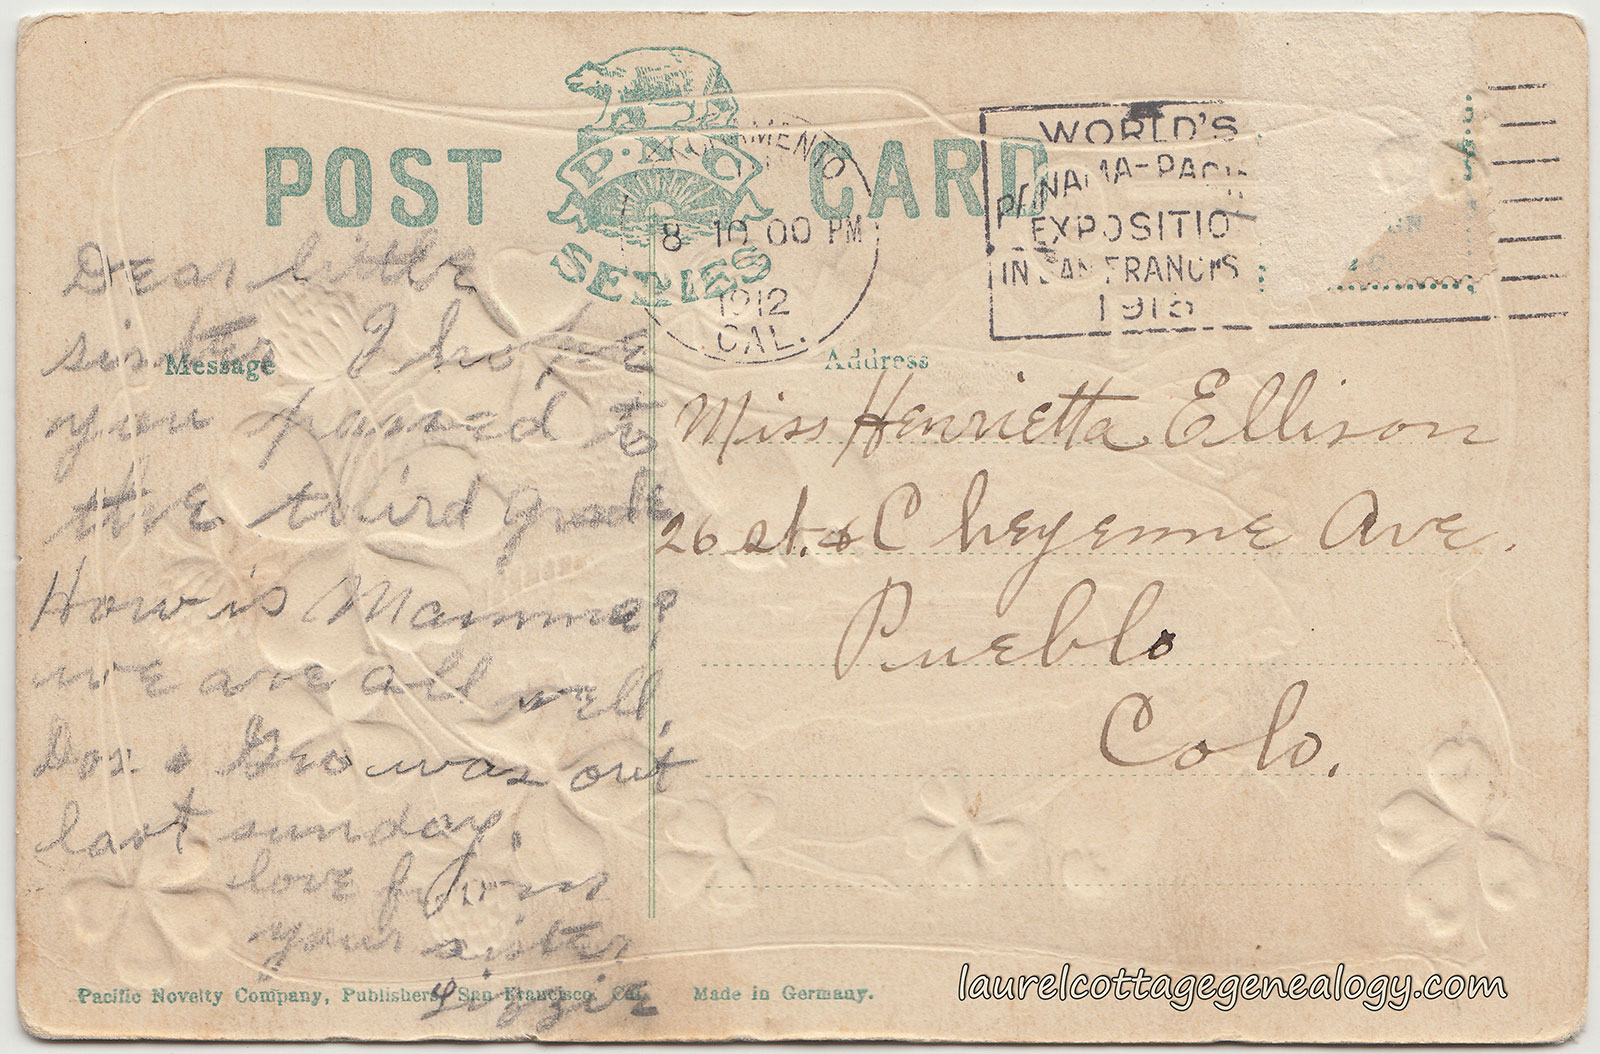 POST CARD
P·N·C
SERIES
SACRAMENTO
8 10 00 PM
1912
CAL.
WORLD'S
PANAMA-PACI
EXPOSITIO
IN SAN FRANCIS
1915
Message
Address
Dear little
sister I hope
you passed to
the third grade
How is Mamma?
we are all well.
& Geo was out
last sunday.
love from
your sister
Lizzie
Miss Henrietta Ellison
26 st. & Cheyenne Ave.
Pueblo
Colo.
Pacific Novelty Company, Publishers, San Francisco, Cal.
Made in Germany.
laurelcottagegenealogy.com